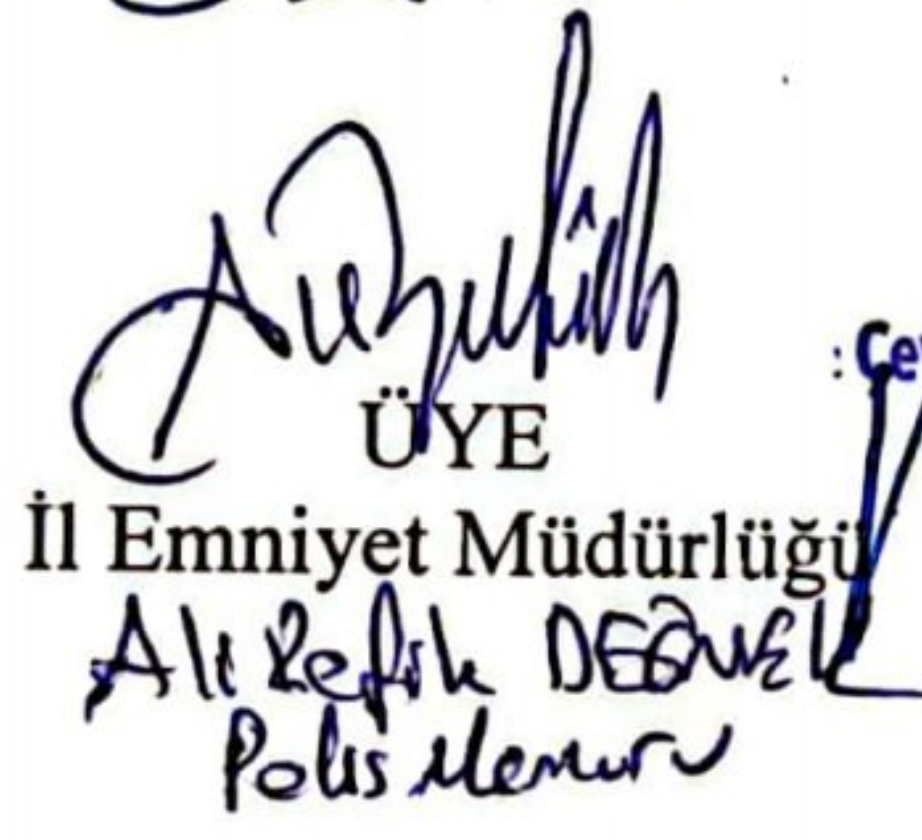 : Çev
ÜYE
İl Emniyet Müdürlüğü
Ali Refik DEĞNEK
Polis Memuru